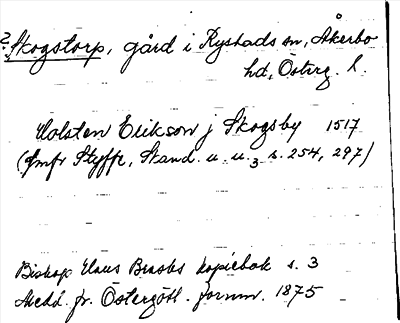 ? Skogstorp, gård i Rystads sn, Åkerbo
hd, Österg. l.
Holsten Erikson j Skogsby 1517
(Jmfr Styffe, Skand. u. u. 3 s. 254, 297)
Biskop Hans Brasks kopiebok s. 3
Medd. fr. Östergötl. fornm. 1875